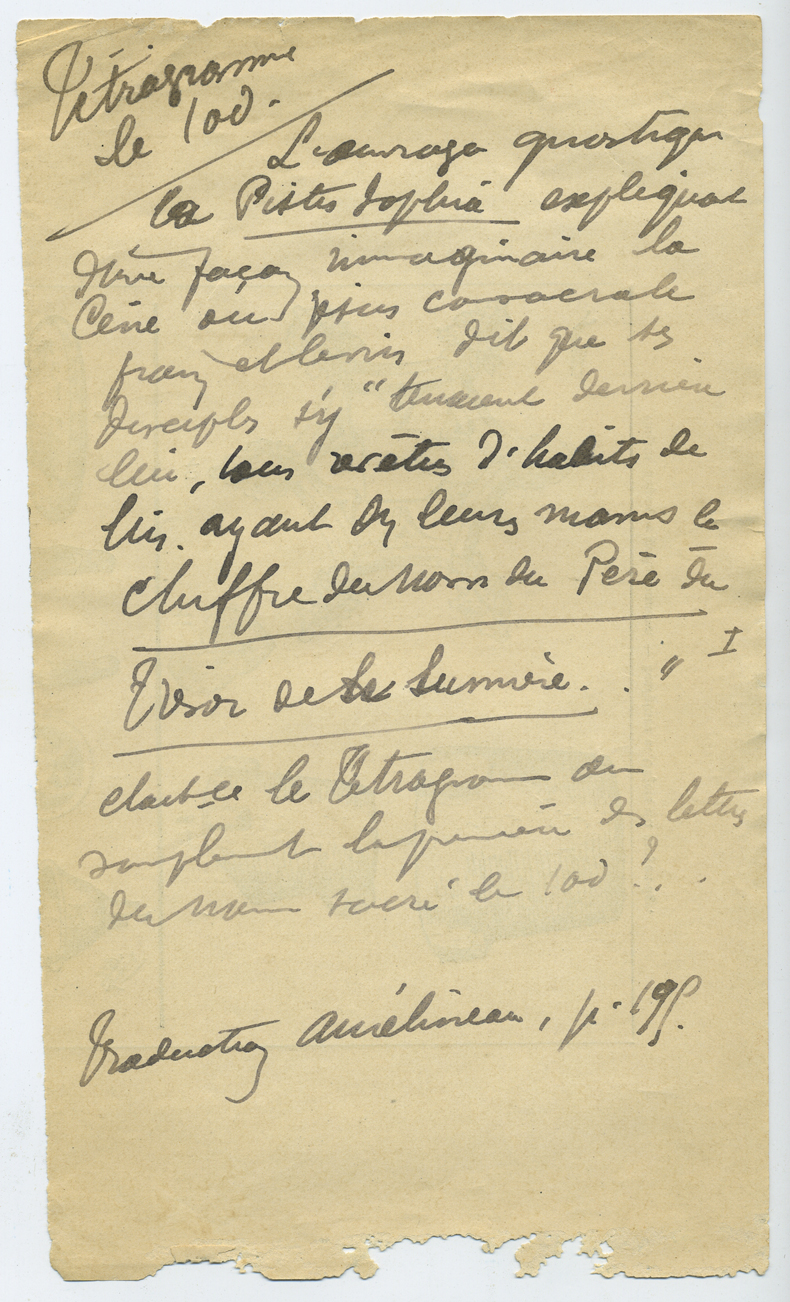 Tétragramme
le Iod.
L'ouvrage gnostique
la Pistis Sophia expliquant
d'une façon immaginaire la
Cène où Jésus consacra le
pain et le vin dit que ses
disciples s'y "tenaient derrière
lui, tous vêtus d'habits de
lin. ayant ds leurs mains le
chiffre du Nom du Père du
Trésor de la Lumière. . " I
était-ce le Tétragramme ou
simplement la première des lettres
du Nom sacré le Iod ? . .
Traduction Amélineau, p. 195.